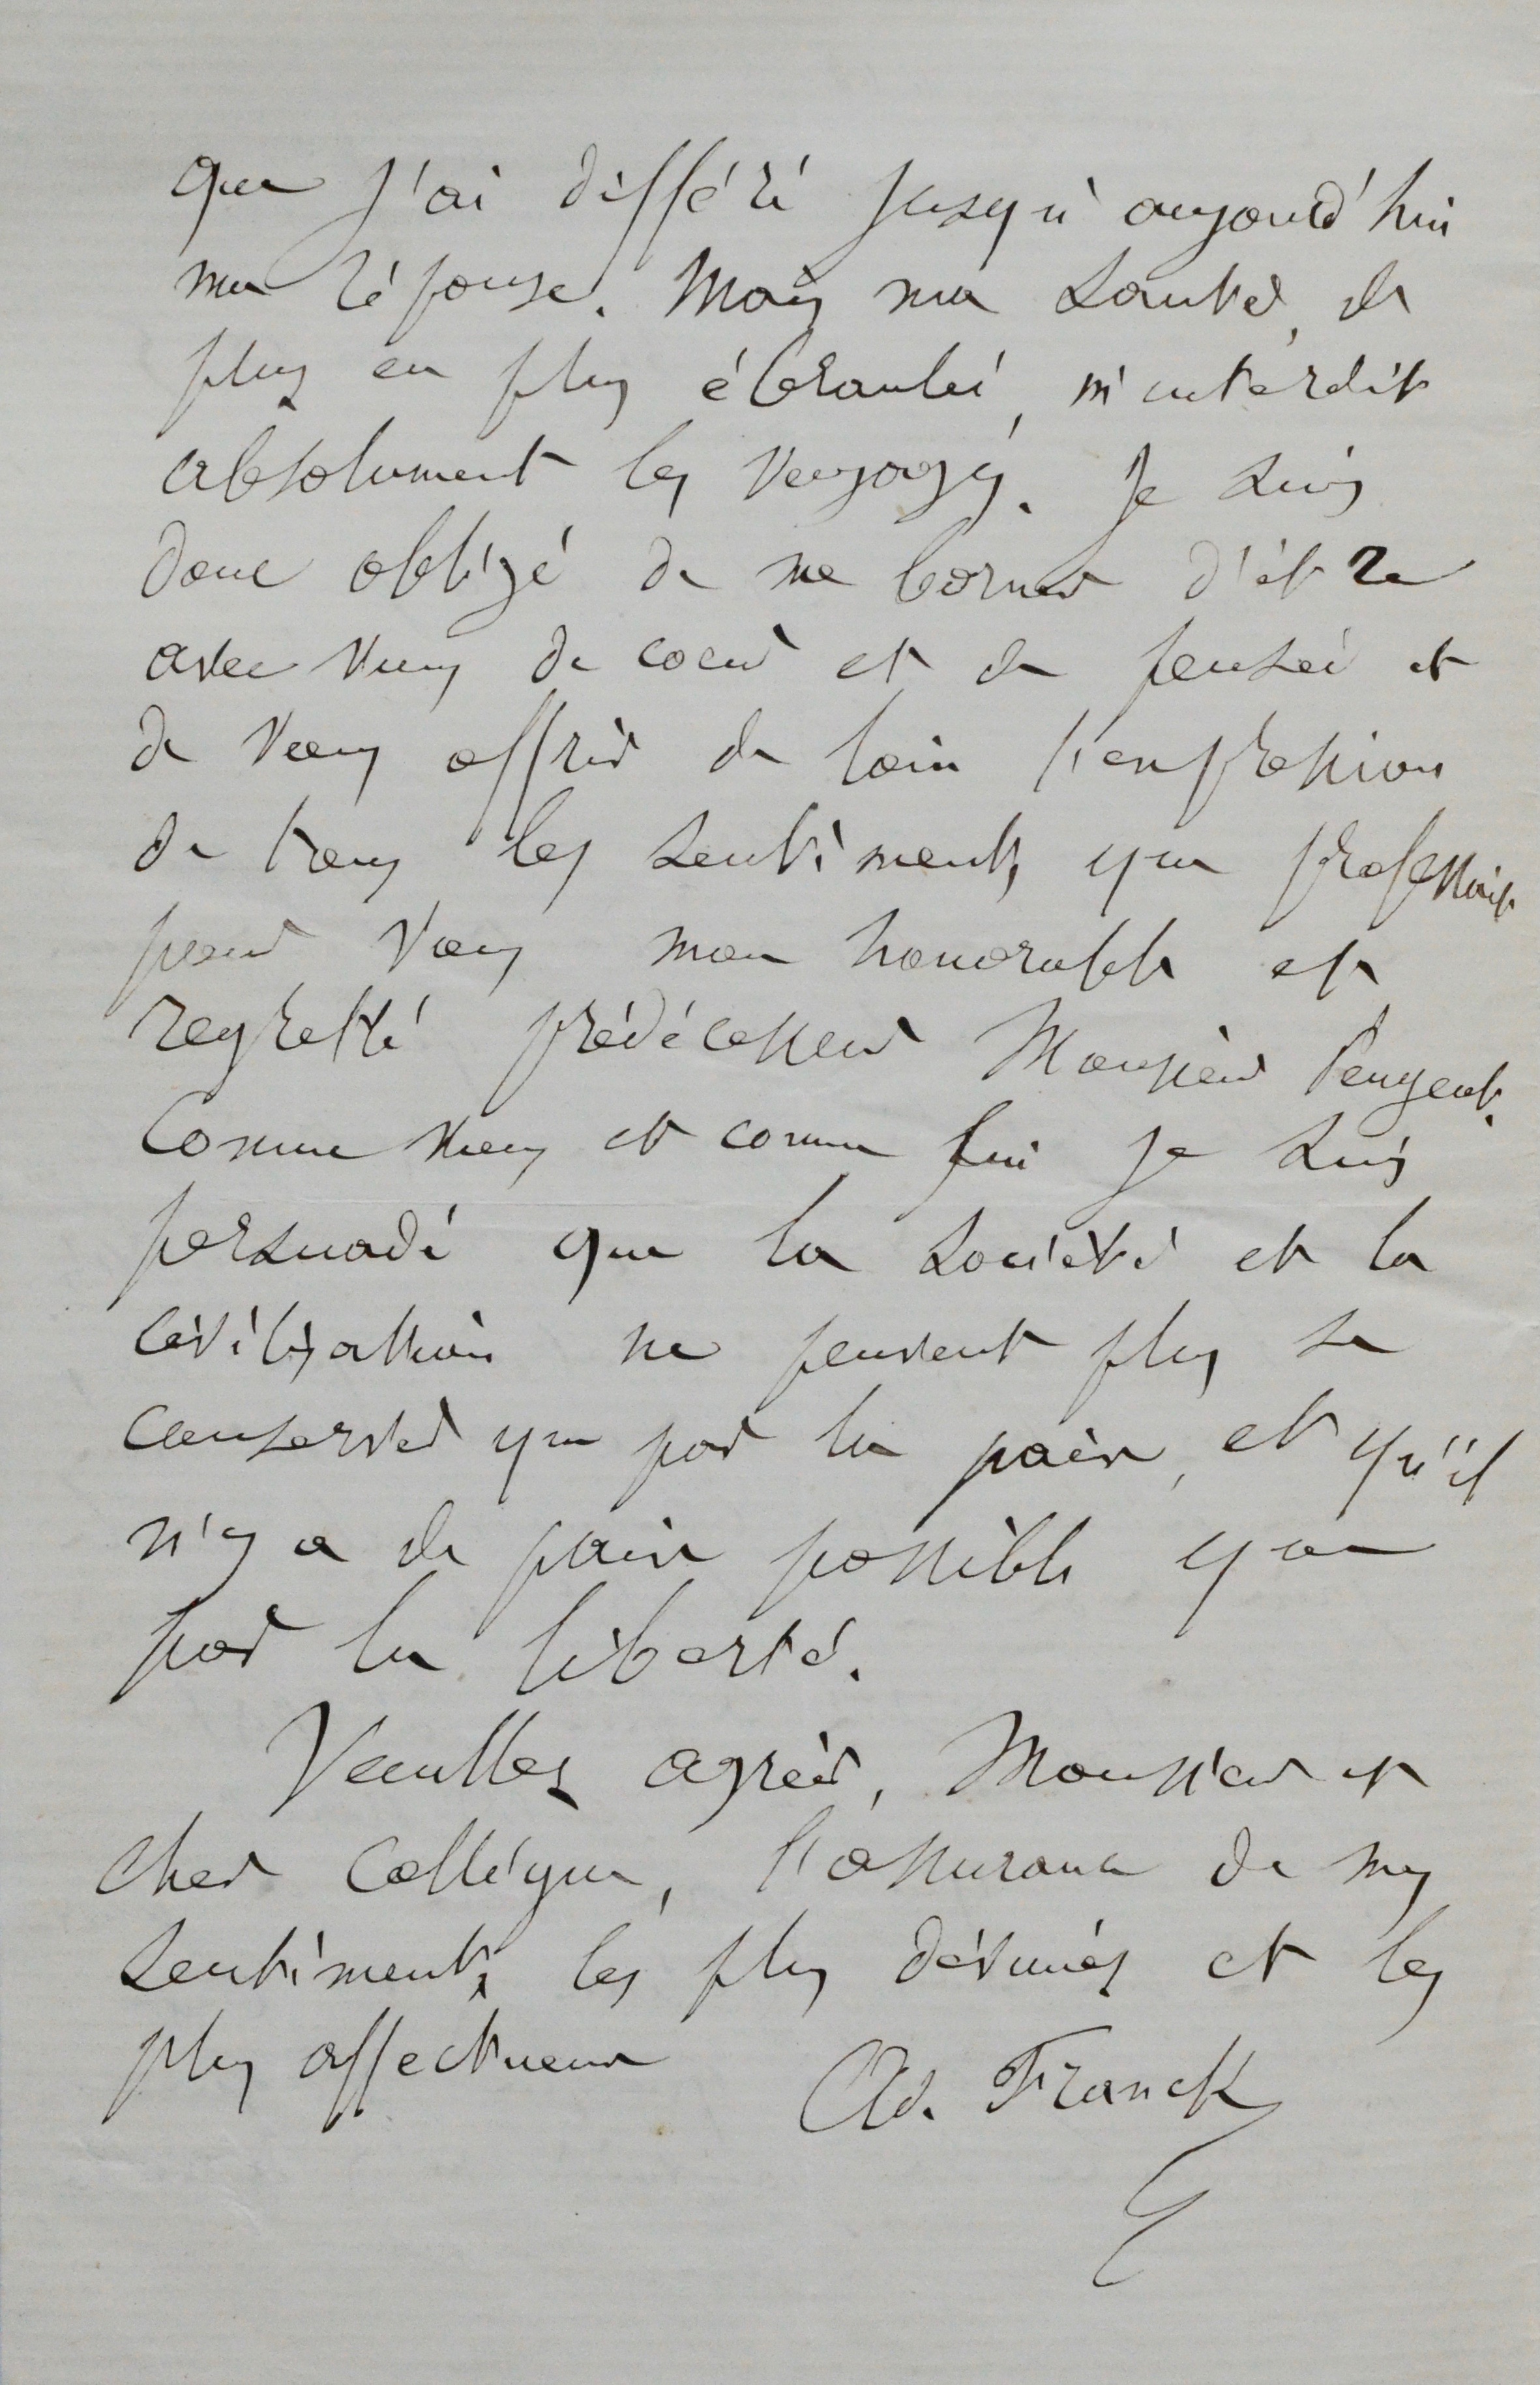 que j'ai différé jusqu'à aujourd'hui
ma réponse. Mais ma santé, de
plus en plus ébranlée, m'interdit
absolument les voyages. Je suis
donc obligé de me borner d'être
avec vous de coeur et de pensée et
de vous offrir de loin l'expression
de tous les sentiments que professait
pour vous mon honorable et
regretté prédécesseur Monsieur Peugeot.
Comme vous et comme lui je suis
persuadé que la société et la
civilisation ne peuvent plus se
conserver que par la paix, et qu'il
n'y a de paix possible que
par la liberté.
Veuillez agréer, Monsieur et
cher Collègue, l'assurance de mes
sentiments les plus dévoués et les
plus affectueux
Ad. Franck